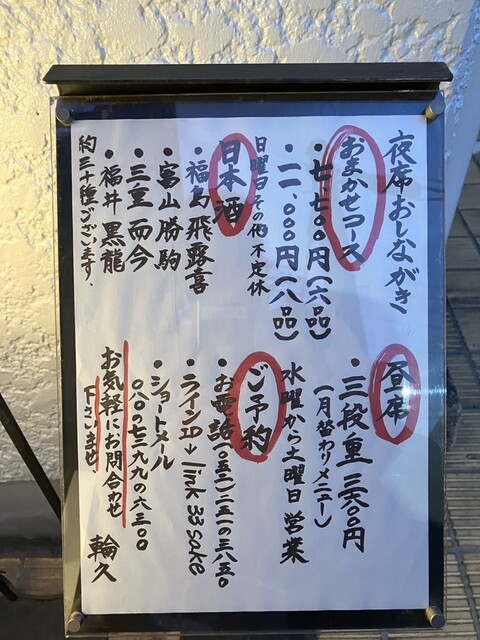 夜席おしながき
おまかせコース
・七、七〇〇円(六品)
・一一、〇〇〇円(八品)
日曜日その他 不定休
日本酒
・福島 飛露喜
・富山 勝駒
・三重 而今
・福井 黒龍
約三十種ございます、
昼席
・三段重 三六〇〇円
(一月替わりメニュー)
水曜から土曜日 営業
ご予約
・お電話
・ラインID→link33sake
・ショートメール
〇八〇の七二九九の六三〇〇
お気軽にお問合わせ
下さいませ
輪久